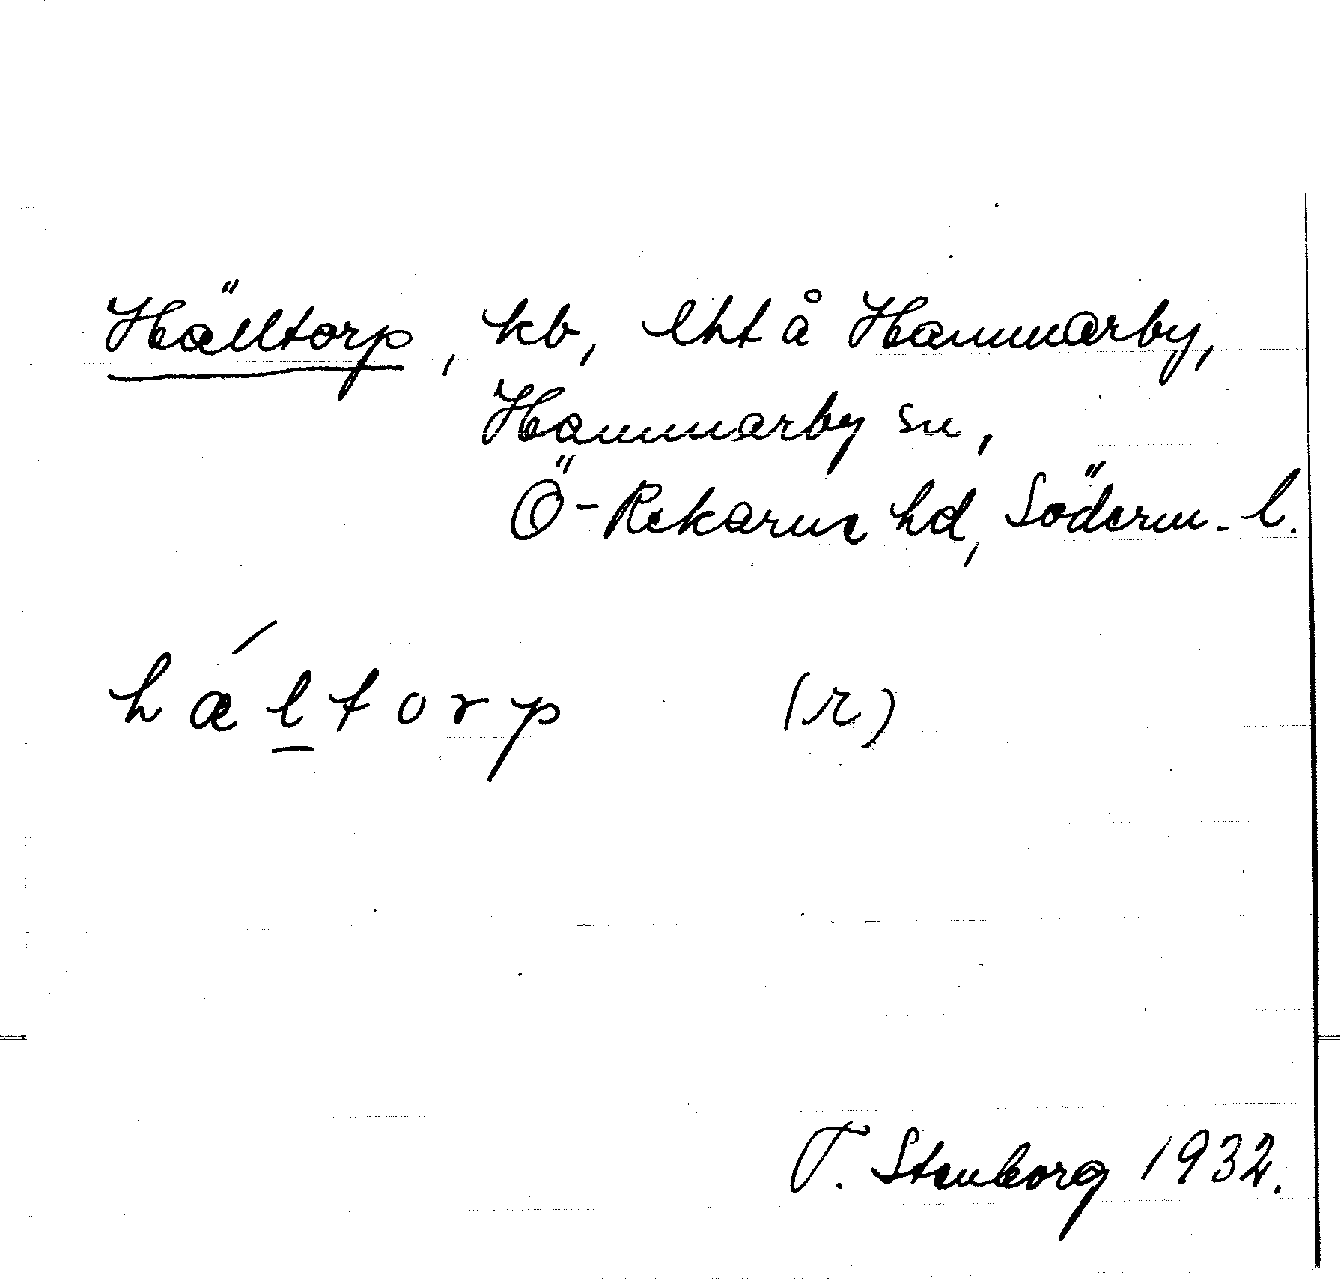 Hälltorp, kb, lht å Hammarby,
Hammarby sn,
Ö-Rekarne hd, Söderm. l.
hǽl̲torp (r)
T. Stenborg 1932.